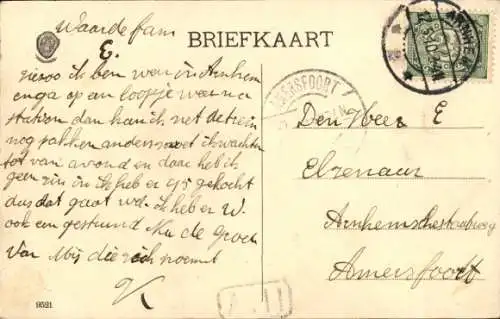 Waarde fam
E.
BRIEFKAART
ARNHEM
AMERSFOORT
hieroo ik ben weer in Arnhem
en ga op een loopje weer na
station dan kan ik net de trein
nog pakken anders moet ik wachten
tot van avond en daar heb ik
geen zin in ik heb er 95 gekocht
dus dat gaat wel ik heb er W.
ook een gestuurd Nu de groet
Van Mij die zich noemt
Den Heer E
Elzenaar
Arnhemschestraatweg
Amersfoort
9521